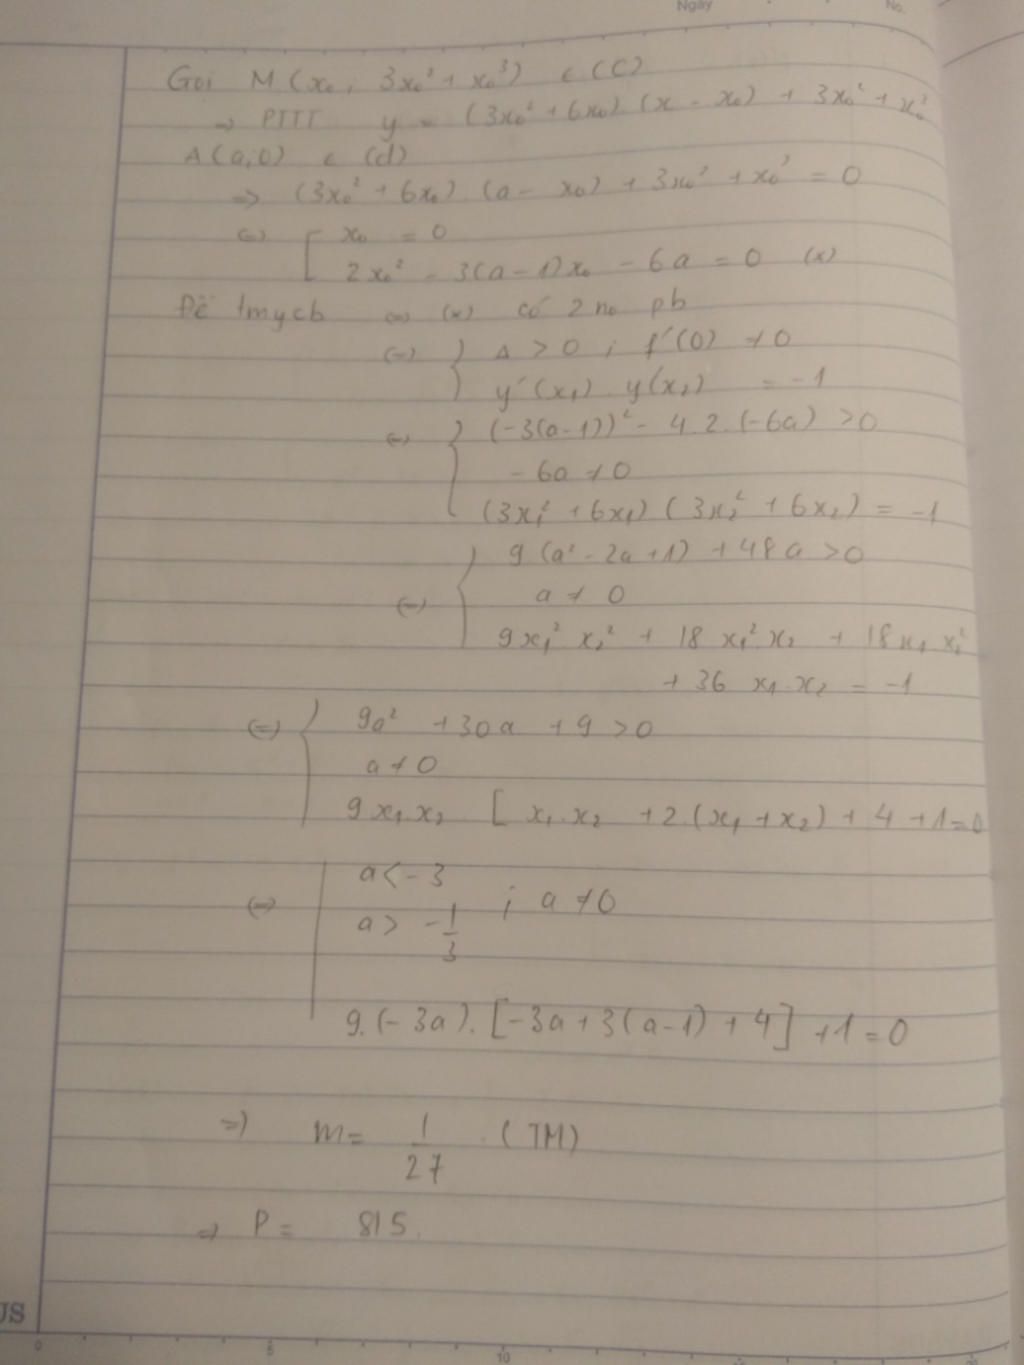 Ngày No.
Gọi M(x₀; 3x₀² + x₀³) ∈ (C)
→ PTTT y = (3x₀² + 6x₀).(x - x₀) + 3x₀² + x₀³
A(a;0) ∈ (d)
=> (3x₀² + 6x₀).(a - x₀) + 3x₀² + x₀³ = 0
<=> [ x₀ = 0
2x₀² - 3(a-1)x₀ - 6a = 0 (*)
Để tmycb <=> (*) có 2 no pb
<=> { Δ > 0 ; f'(0) ≠ 0
y'(x₁). y(x₂) = -1
<=> { (-3(a-1))² - 4.2.(-6a) > 0
-6a ≠ 0
(3x₁² + 6x₁)(3x₂² + 6x₂) = -1
<=> { 9(a² - 2a + 1) + 48a > 0
a ≠ 0
9x₁².x₂² + 18x₁².x₂ + 18x₁.x₂²
+ 36 x₁.x₂ = -1
<=> { 9a² + 30a + 9 > 0
a ≠ 0
9x₁.x₂ [x₁.x₂ + 2.(x₁ + x₂) + 4 + 1 = 0
<=> | a < -3
; a ≠ 0
a > -1/3
9.(-3a).[-3a + 3(a-1) + 4] + 1 = 0
=> m = 1/27 (TM)
=> P = 815.
US
0 5 10